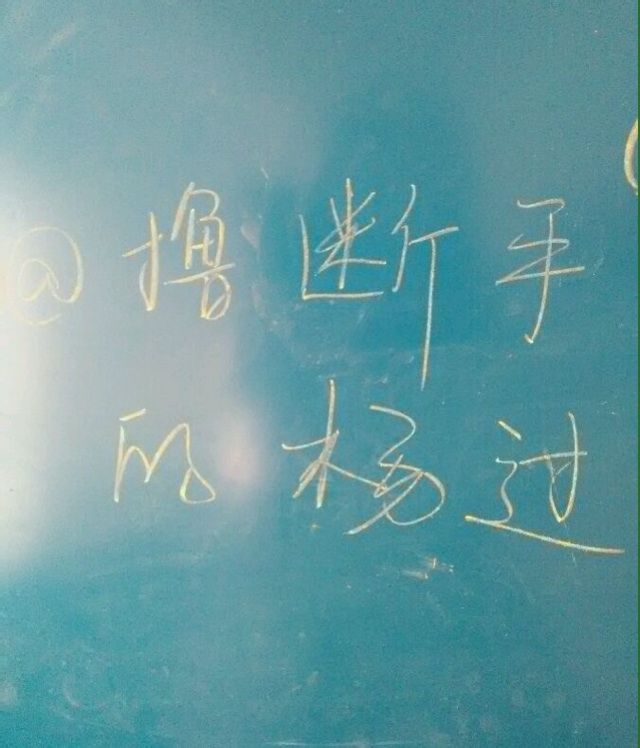 @撸断手
的杨过